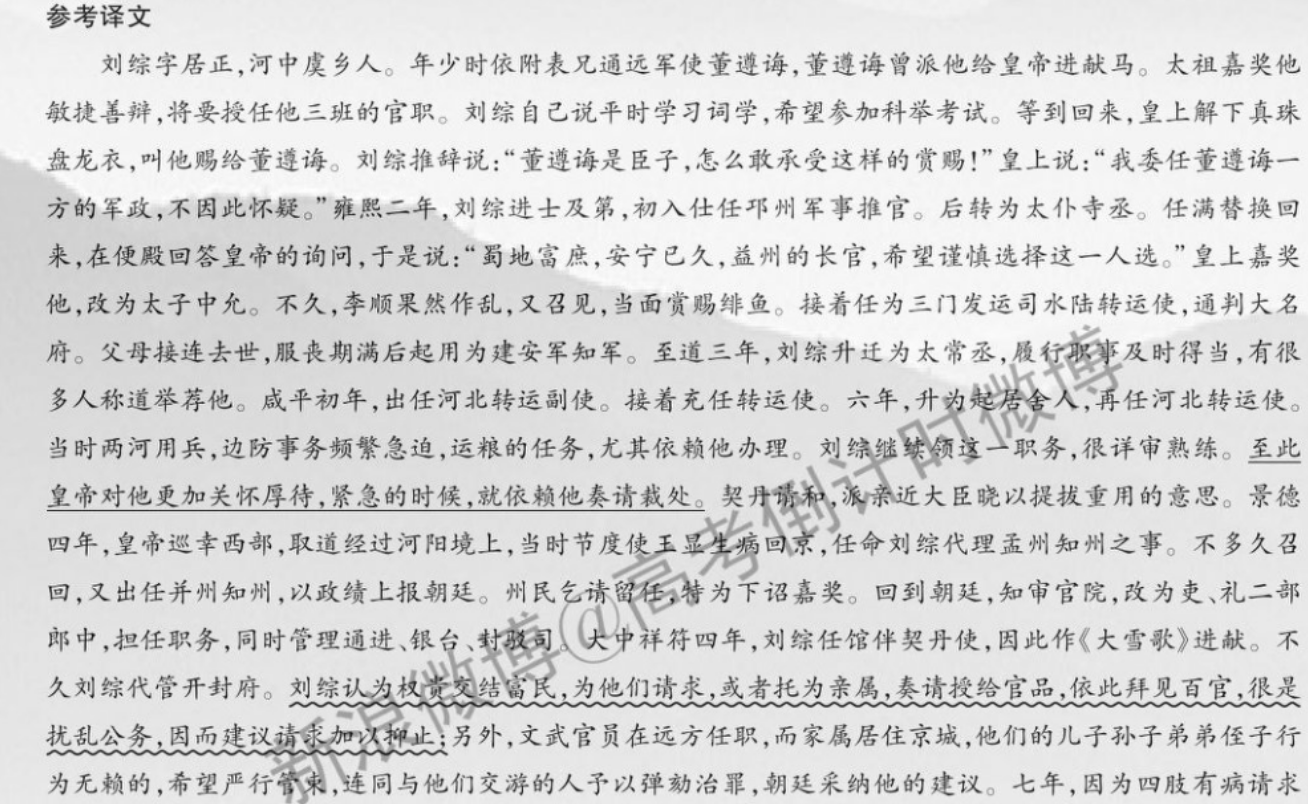 参考译文
刘综字居正,河中虞乡人。年少时依附表兄通远军使董遵诲,董遵诲曾派他给皇帝进献马。太祖嘉奖他
敏捷善辩,将要授任他三班的官职。刘综自己说平时学习词学,希望参加科举考试。等到回来,皇上解下真珠
盘龙衣,叫他赐给董遵诲。刘综推辞说:“董遵诲是臣子,怎么敢承受这样的赏赐!”皇上说:“我委任董遵诲一
方的军政,不因此怀疑。”雍熙二年,刘综进士及第,初入仕任邛州军事推官。后转为太仆寺丞。任满替换回
来,在便殿回答皇帝的询问,于是说:“蜀地富庶,安宁已久,益州的长官,希望谨慎选择这一人选。”皇上嘉奖
他,改为太子中允。不久,李顺果然作乱,又召见,当面赏赐绯鱼。接着任为三门发运司水陆转运使,通判大名
府。父母接连去世,服丧期满后起用为建安军知军。至道三年,刘综升迁为太常丞,履行职事及时得当,有很
多人称道举荐他。咸平初年,出任河北转运副使。接着充任转运使。六年,升为起居舍人,再任河北转运使。
当时两河用兵,边防事务频繁急迫,运粮的任务,尤其依赖他办理。刘综继续领这一职务,很详审熟练。至此
皇帝对他更加关怀厚待,紧急的时候,就依赖他奏请裁处。契丹请和,派亲近大臣晓以提拔重用的意思。景德
四年,皇帝巡幸西部,取道经过河阳境上,当时节度使王显生病回京,任命刘综代理孟州知州之事。不多久召
回,又出任并州知州,以政绩上报朝廷。州民乞请留任,特为下诏嘉奖。回到朝廷,知审官院,改为吏、礼二部
郎中,担任职务,同时管理通进、银台、封驳司。大中祥符四年,刘综任馆伴契丹使,因此作《大雪歌》进献。不
久刘综代管开封府。刘综认为权贵交结富民,为他们请求,或者托为亲属,奏请授给官品,依此拜见百官,很是
扰乱公务,因而建议请求加以抑止;另外,文武官员在远方任职,而家属居住京城,他们的儿子孙子弟弟侄子行
为无赖的,希望严行管束,连同与他们交游的人予以弹劾治罪,朝廷采纳他的建议。七年,因为四肢有病请求
新浪微博@高考倒计时微博